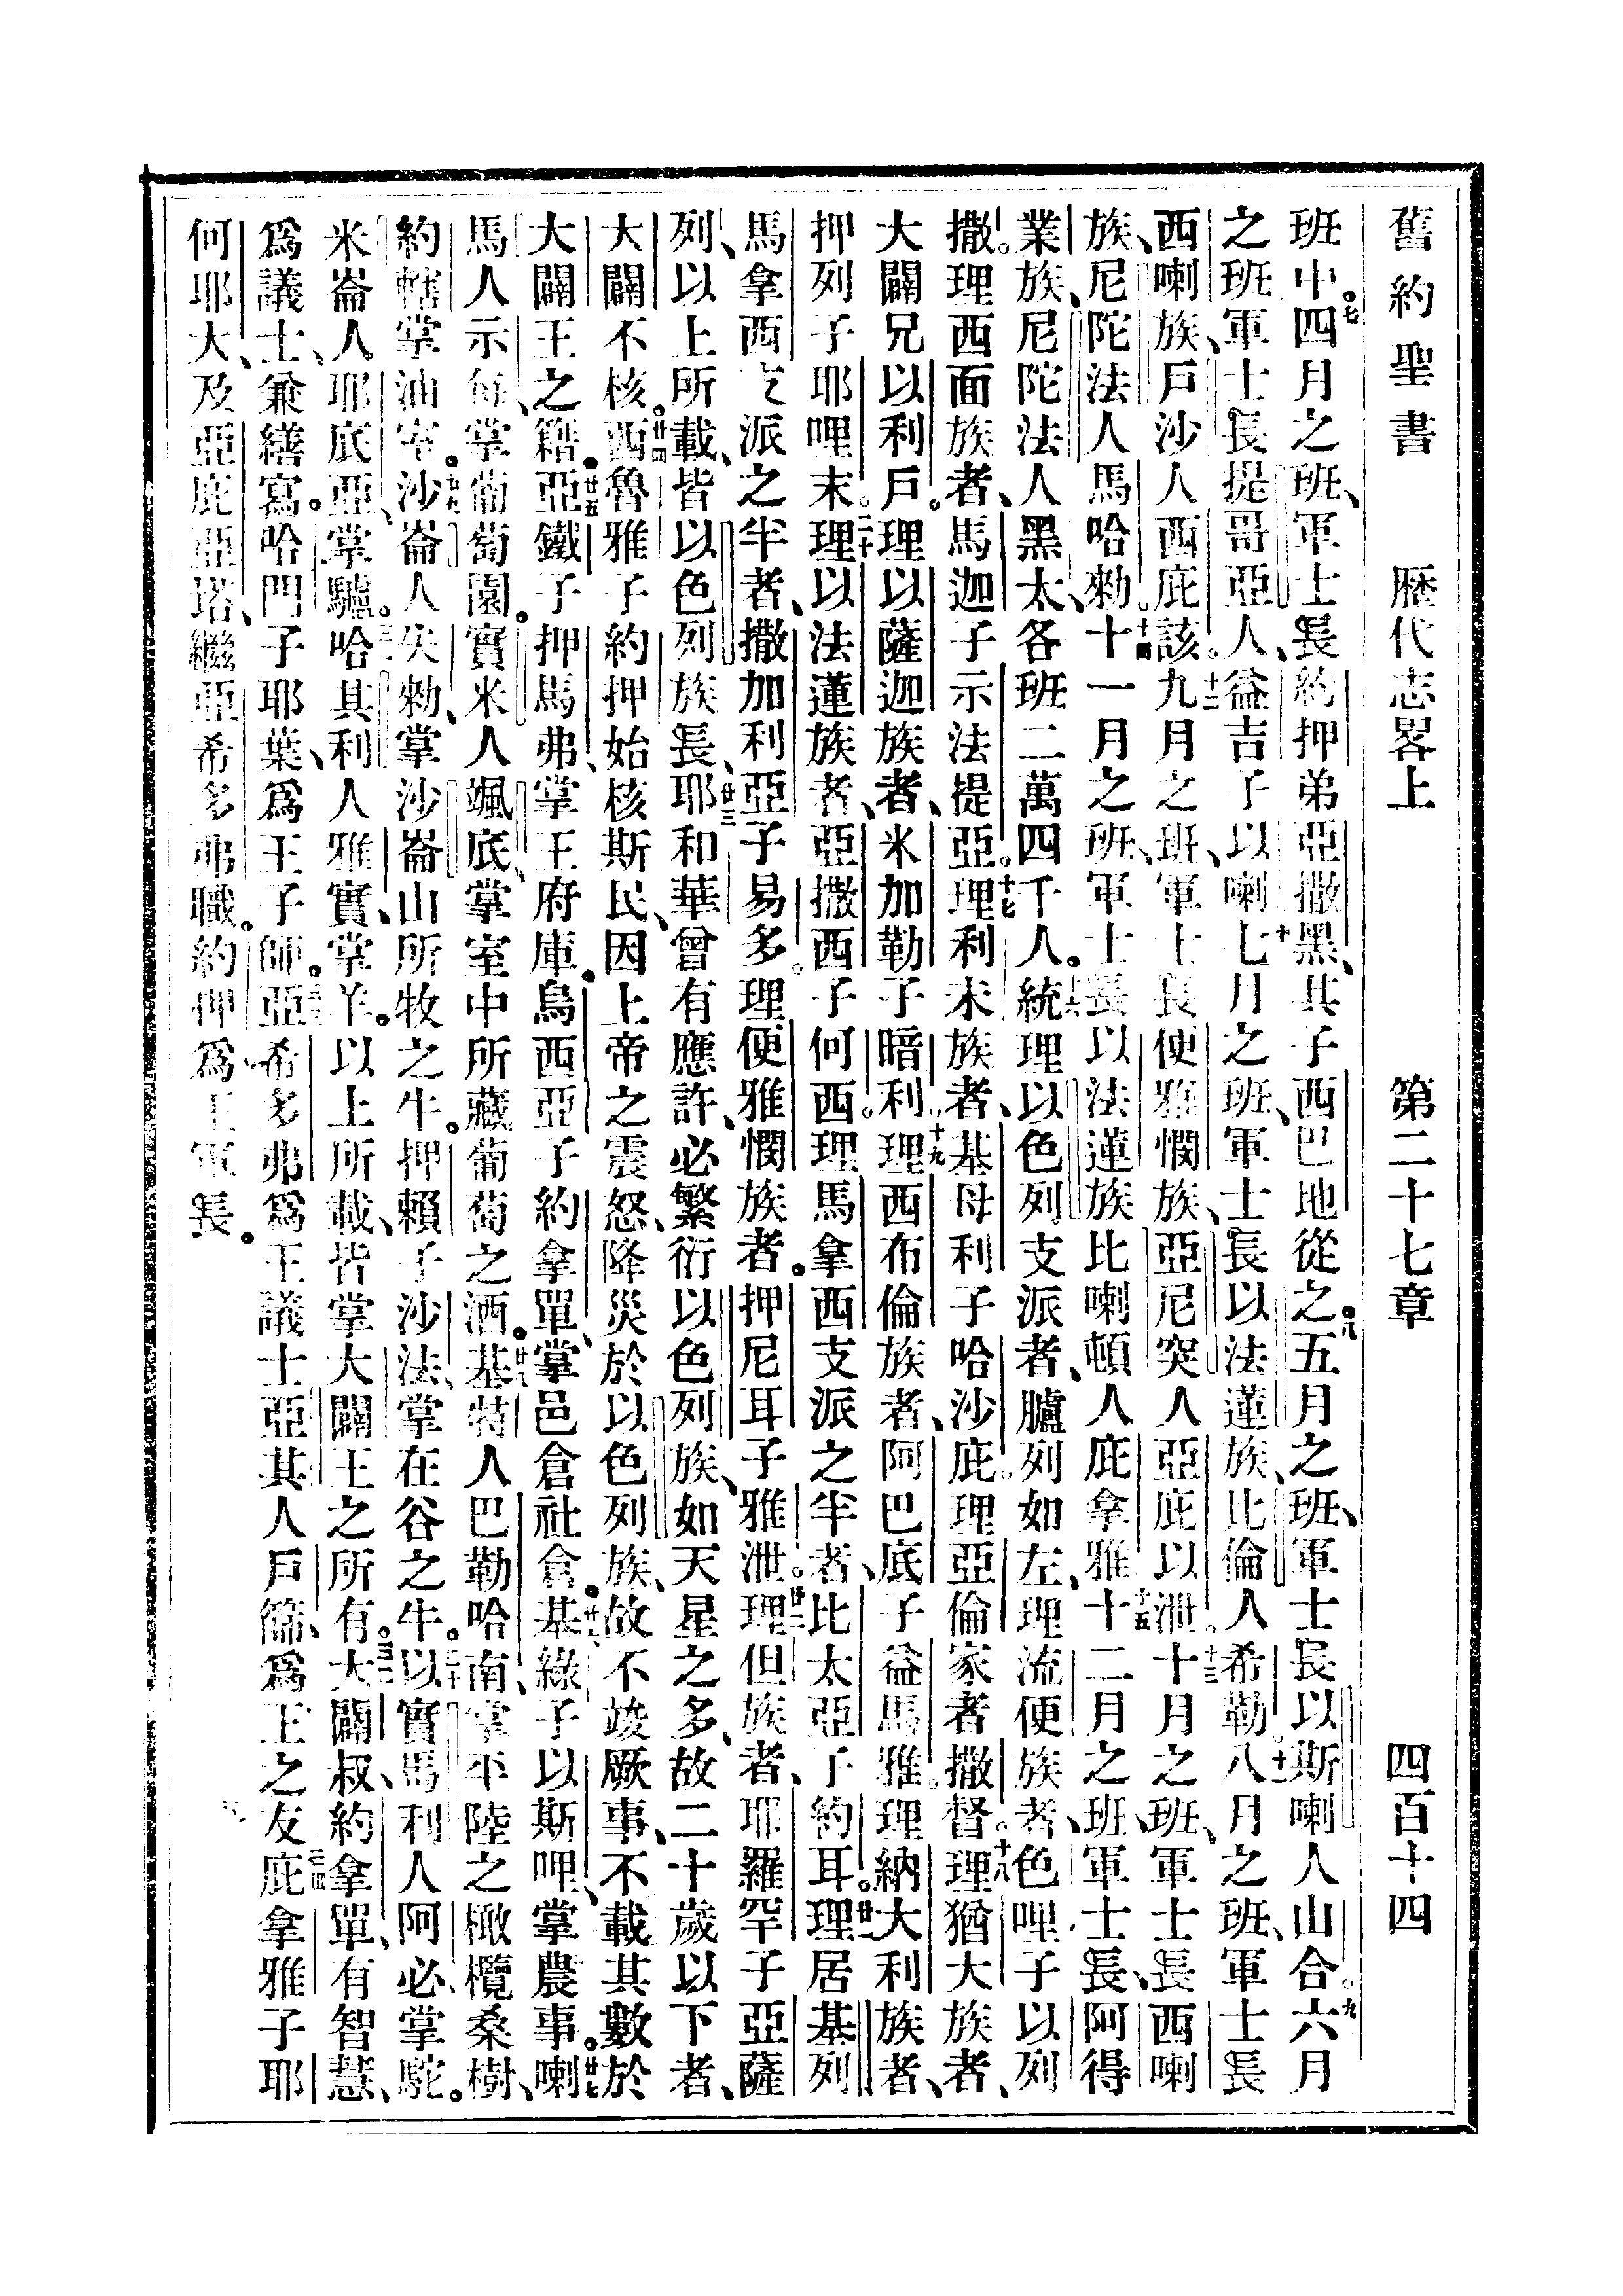 舊約聖書 歷代志畧上 第二十七章 四百十四
班中。七四月之班、軍士長約押弟亞撒黑、其子西巴地從之。八五月之班、軍士長以斯喇人山合。九六月
之班、軍士長提哥亞人、益吉子以喇。十七月之班、軍士長以法蓮族、比倫人希勒。十一八月之班、軍士長
西喇族、戶沙人西庇該。十二九月之班、軍士長便雅憫族、亞尼突人亞庇以泄。十三十月之班、軍士長西喇
族、尼陀法人馬哈勑。十四十一月之班、軍士長以法蓮族比喇頓人庇拿雅。十五十二月之班、軍士長、阿得
業族、尼陀法人黑太、各班二萬四千人。十六統理以色列支派者、臚列如左、理流便族者、色哩子以列
撒。理西面族者、馬迦子示法提亞。十七理利未族者、基母利子哈沙庇。理亞倫家者撒督。十八理猶大族者、
大闢兄以利戶。理以薩迦族者、米加勒子暗利。十九理西布倫族者、阿巴底子益馬雅。理納大利族者、
押列子耶哩末。二十理以法蓮族者、亞撒西子何西。理馬拿西支派之半者、比太亞子約耳。廿一理居基列
馬拿西支派之半者、撒加利亞子易多。理便雅憫族者。押尼耳子雅泄。廿二理但族者、耶羅罕子亞薩
列、以上所載、皆以色列族長、廿三耶和華曾有應許、必繁衍以色列族、如天星之多、故二十歲以下者、
大闢不核。廿四西魯雅子約押始核斯民、因上帝之震怒、降災於以色列族、故不竣厥事、不載其數於
大闢王之籍。廿五亞鐵子押馬弗、掌王府庫。烏西亞子約拿單、掌邑倉社倉。廿六基綠子以斯哩、掌農事。廿七喇
馬人示每、掌葡萄園。實米人颯底、掌室中所藏葡萄之酒。廿八基特人巴勒哈南、掌平陸之橄欖桑樹、
約轄掌油室。廿九沙崙人失勑、掌沙崙山所牧之牛。押賴子沙法、掌在谷之牛。三十以實馬利人阿必、掌駝。
米崙人耶底亞、掌驢。三一哈其利人雅實、掌羊。以上所載、皆掌大闢王之所有。三二大闢叔、約拿單、有智慧、
爲議士、兼繕寫。哈門子耶葉、爲王子師。三三亞希多弗爲王議士亞其人戶篩、爲王之友三四庇拿雅子耶
何耶大、及亞庇亞塔、繼亞希多弗職。約押爲王軍長。